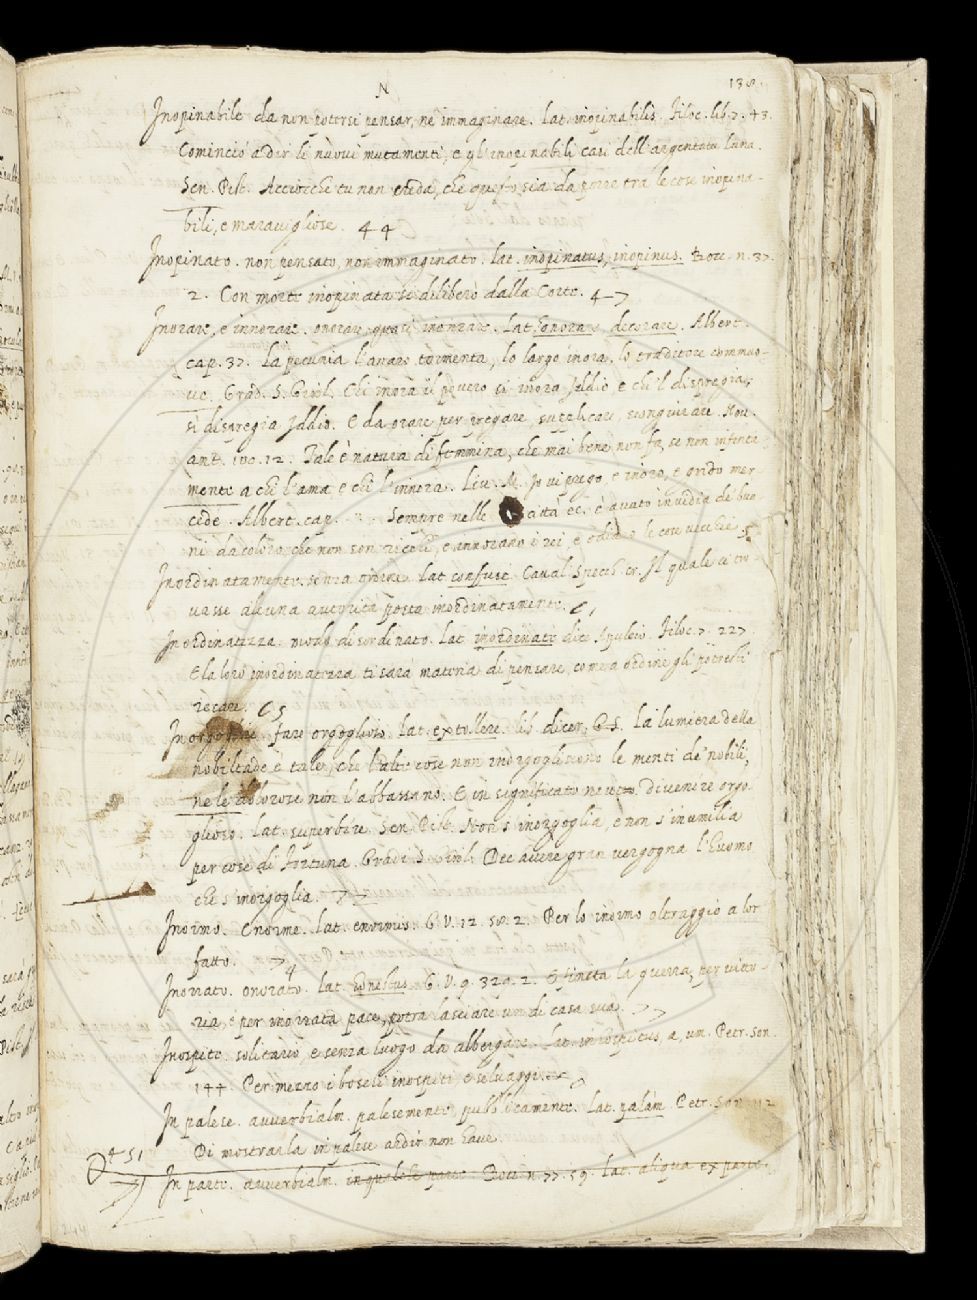 N 138.
Inopinabile da non potersi pensar, nè immaginare. lat. inopinabilis. Filoc. lib. 7. 43.
Cominciò a dir li nuovi mutamenti, e gl'inopinabili casi dell'argentata luna.
Sen. Pist. Acciocche tu non creda, che questo sia da porre tra le cose inopina-
bili, e maravigliose. 44
Inopinato. non pensato, non immaginato. lat. inopinatus, inopinus. Bocc. n. 37.
2. Con morte inopinata si diliberò dalla Corte. 47
Inorare, e innorare. onorare, quasi inonrare. lat. honorare, decorare. Albert.
cap. 37. La pecunia l'avaro tormenta, lo largo inora, lo traditore commuo-
ve. Grad. S. Girol. Chi inora il povero si inora Iddio e chi 'l dispregia,
si dispregia Iddio. E da orare per pregare, supplicare, scongiurare. Nov.
ant. 100. 12. Tale è natura di femmina, che mai bene non fa, se non infinta
mente a chi l'ama e chi l'innora. Liv. M. Io vi prego, e inoro, e grido mer-
cede. Albert. cap. Sempre nelle ec. è avuto invidia de buo
ni da coloro, che non son ricchi, e innorano i rei e odiano le cose vecchie
Inordinatamente. senza ordine. lat. confuse. Caval. Specch. cr. Il quale ci tro
vasse alcuna autorità posta inordinatamente.
Inordinatezza. modo disordinato. lat. Apuleio. Filoc. 7. 227
E la loro inordinatezza ti sarà materia di pensare, come a ordine gli potresti
recare.
Inorgoglire. fare orgoglioso. lat. extollere. lib. dicer. La lumiera della
nobiltade è tale, che l'alte cose non inorgogliscono le menti de nobili,
ne le dolorose non l'abbassano. E in significato neutro. divenire orgo
glioso. lat. superbire. Sen. Pist. Non s'inorgoglia, e non s'inumilia
per cose di fortuna. Gradi S. Girol. Dee avere gran vergogna l'huomo
che s'inorgoglia.
Inormo. Enorme. lat. enormis. G. V. 12. 58. 2. Per lo inormo oltraggio a lor
fatto.
Inorrato. onorato. lat. honestus. G. V. 9. 329. 2. E finita la guerra, per vitto-
ria, e per inorrata pace, potra lasciare un di casa sua.
Inospite. solitario, e senza luogo da albergare. lat. inhospitus, a, um. Petr. son.
144. Per mezzo i boschi inospiti, e selvaggi.
In palese. avverbialm. palesemente, pubblicamente. lat. palàm. Petr. Son. 112
Di mostrarla in palese ardir non have.
451
In parte. avverbialm. in qualche parte. Bocc. n. 77. 59. lat. aliqua ex parte.